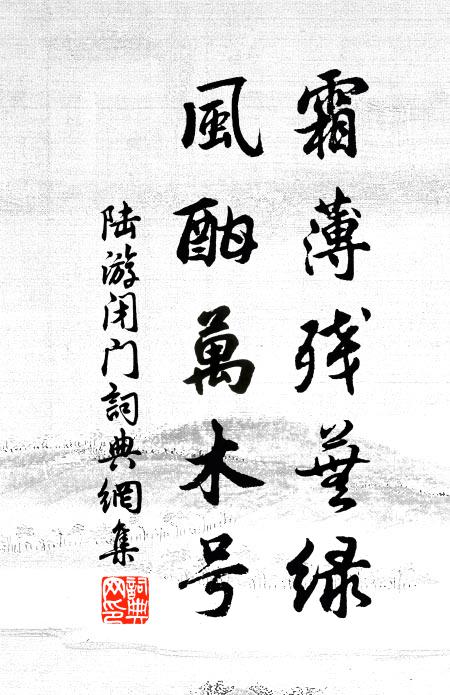 霜薄残蕪緑
風酣萬木号
陆游闭门詞典網集
詞典网印